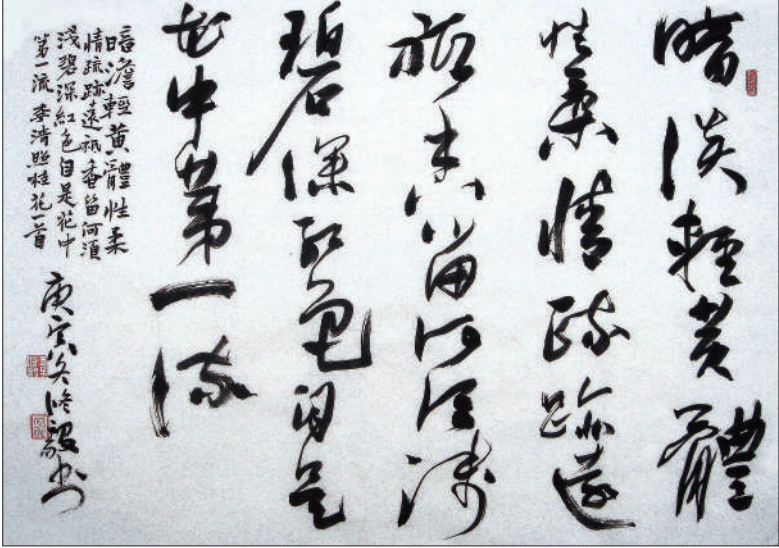 暗淡輕黃體
性柔情疏跡遠
祇香留何須淺
碧深紅色自是
花中第一流
暗澹輕黃體性柔
情疏跡遠祇香留何須
淺碧深紅色自是花中
第一流 李清照桂花一首
庚寅冬修毅书